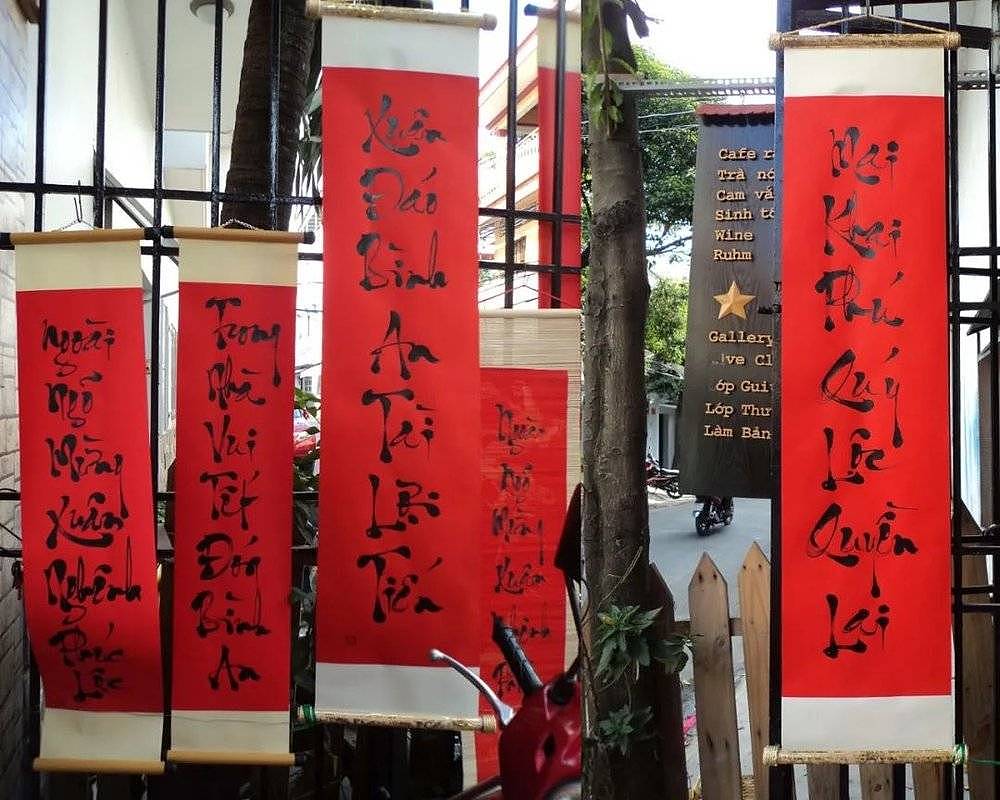 Ngoài Ngõ Mừng Xuân Nghênh Phúc Lộc
Trong Nhà Vui Tết Đón Bình An
Xuân Đáo Bình An Tài Lợi Tiến
Ngoài Ngõ Mừng Xuân
Cafe
Trà
Cam
Sinh tố
Wine
Ruhm
Gallery
Lớp
Làm
Mai Khai Phú Quý Lộc Quyền Lai